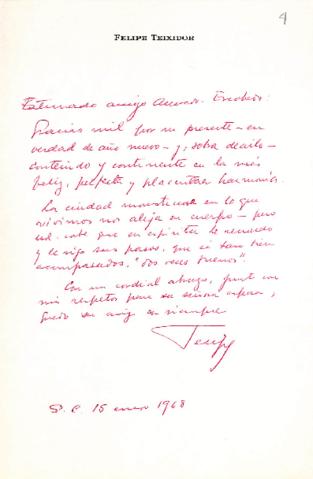 4
FELIPE TEIXIDOR
Estimado amigo Acevedo Escobedo:
Gracias mil por su presente – en
verdad de año nuevo – y, sobra decirlo –
contenido y continente en la más
feliz, perfecta y placentera harmonía.
La ciudad monstruosa en la que
vivimos nos aleja en cuerpo – pero
ud. sabe que en espíritu le recuerdo
y le sigo sus pasos, que si van bien
acompasados, "dos veces buenos".
Con un cordial abrazo, junto con
mis respetos para su señora esposa,
quedo su amigo de siempre
S. C. 15 enero 1968